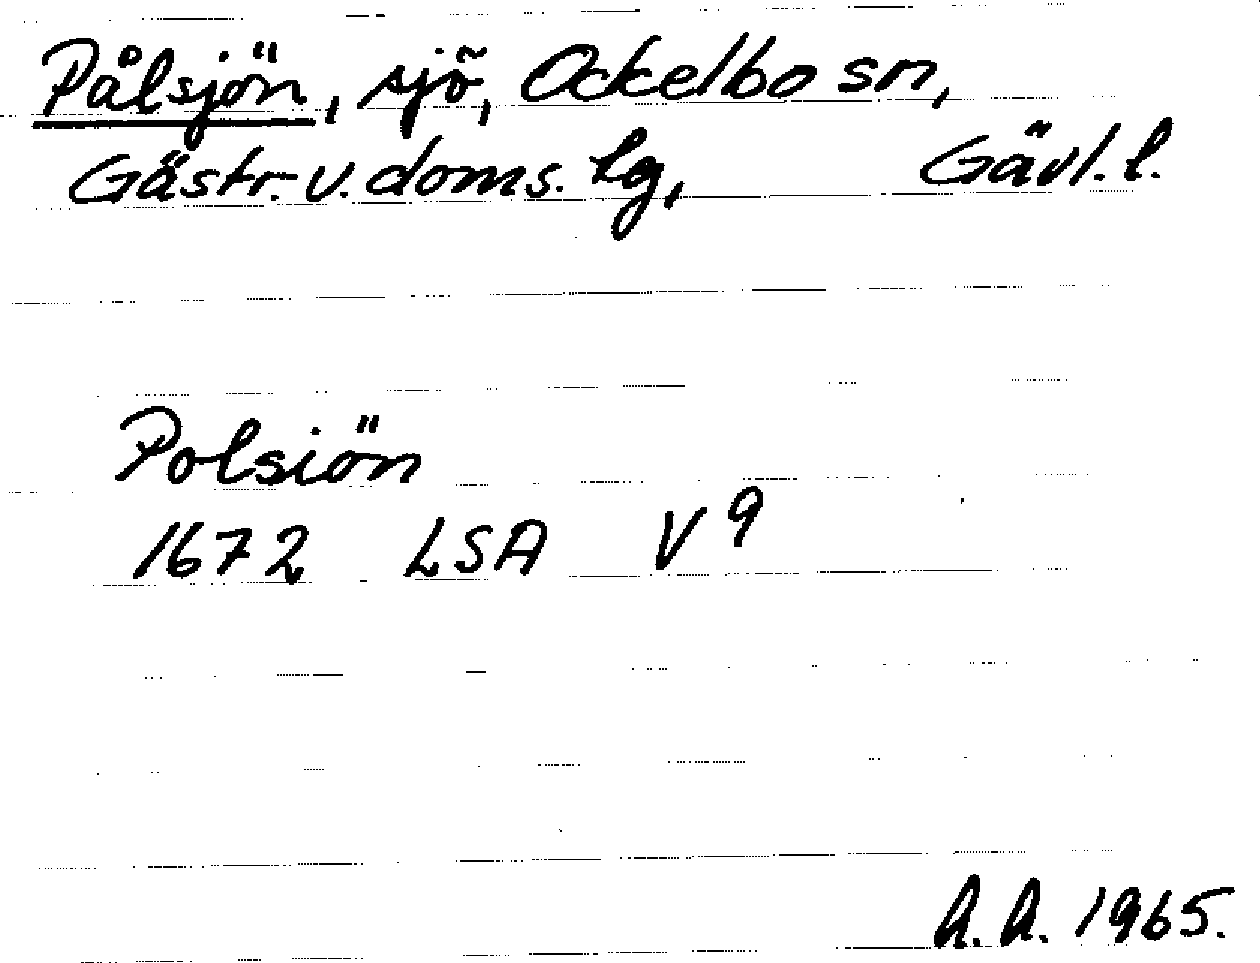 Pålsjön, sjö, Ockelbo sn,
Gästr. v. doms. lg, Gävl. l.
Polsiön
1672 LSA V 9
A. A. 1965.